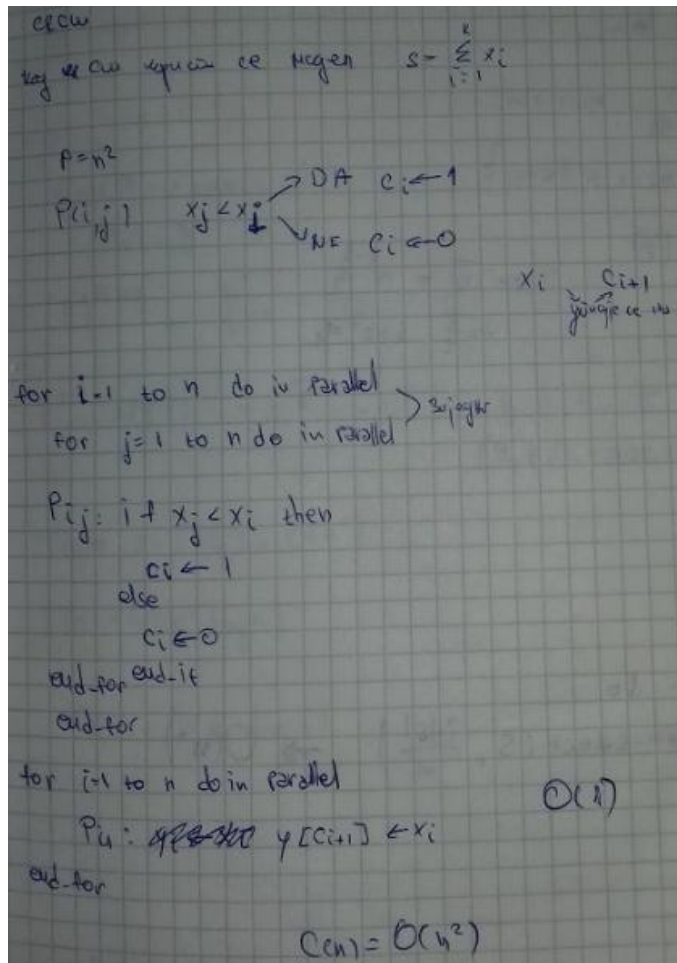 CRCW
код CW користи се модел s = k Σ i=1 xi
p = n²
P(i,j) xj < xj → DA ci ← 1
↘ NE ci ← 0
xi ci+1
for i=1 to n do in parallel
for j=1 to n do in parallel
Pij: if xj < xi then
ci ← 1
else
ci ← 0
end-for end-if
end-for
for i=1 to n do in parallel
O(1)
Pi1: y[ci+1] ← xi
end-for
C(n) = O(n²)